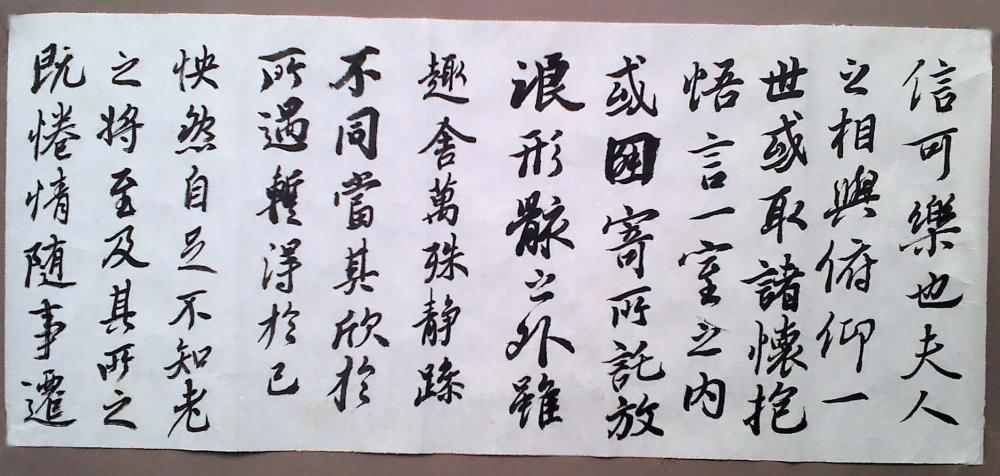 信可樂也夫人
之相與俯仰一
世或取諸懷抱
悟言一室之内
或因寄所託放
浪形骸之外雖
趣舍萬殊静躁
不同當其欣於
所遇暫得於己
怏然自足不知老
之將至及其所之
既惓情随事遷